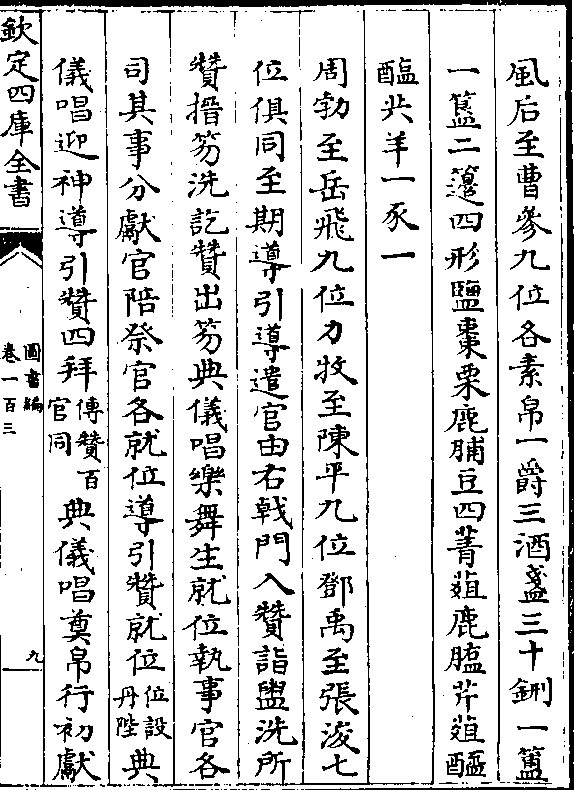 風后至曹參九位各素帛一爵三酒盞三十鉶一簠
一簋二籩四形鹽棗栗鹿脯豆四菁葅鹿醢芹葅醓
醢共羊一豕一
周勃至岳飛九位力牧至陳平九位鄧禹至張浚七
位俱同至期導引導遣官由右㦸門入贊詣盥洗所
贊搢笏洗訖贊出笏典儀唱樂舞生就位執事官各
司其事分獻官陪祭官各就位導引贊就位位設丹陛典
儀唱迎神導引贊四拜傳贊百官同典儀唱奠帛行初獻
欽定四庫全書
圖書編
卷一百三
九